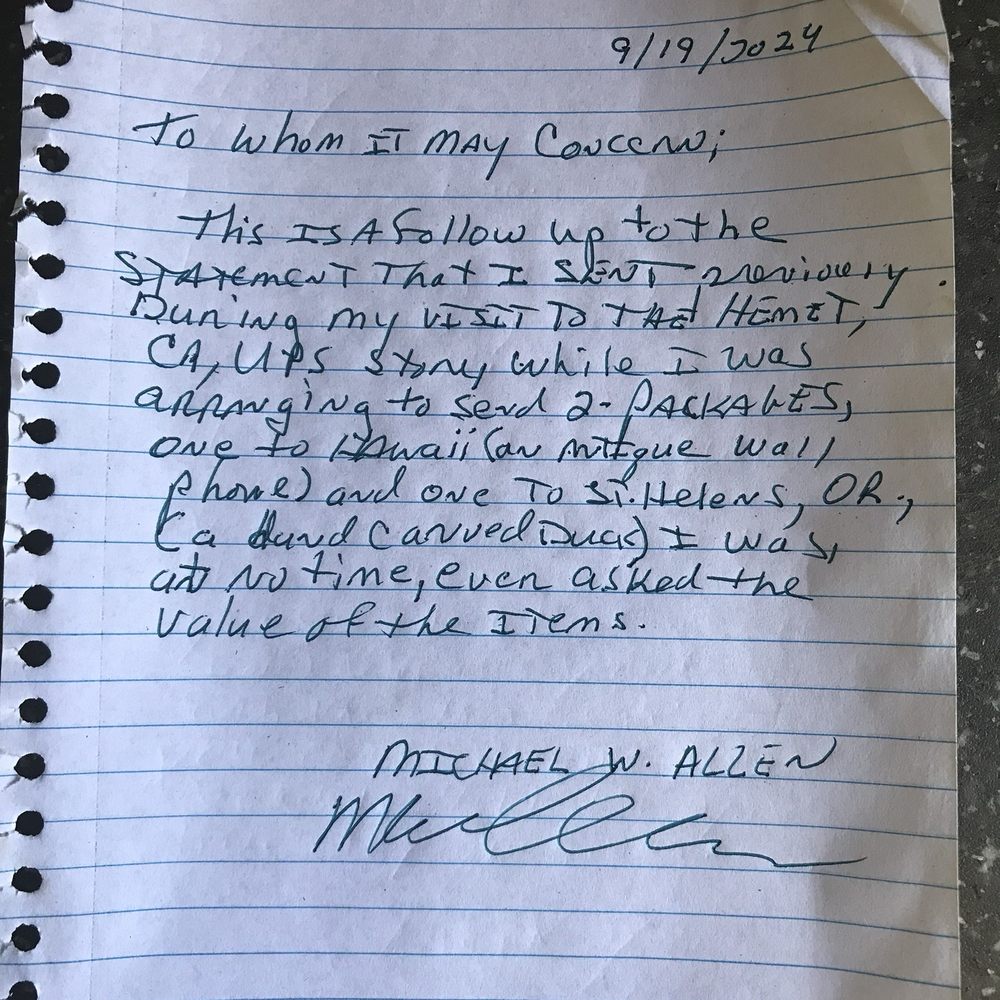 9/19/2024
To Whom IT MAY Concern;
This IS A Follow up to the
STATEMENT That I SENT previously.
During my VISIT TO THE HEMET,
CA, UPS Store, while I was
arranging to send 2-PACKAGES,
one to Hawaii (an Antique wall
phone) and one To ST. Helens, OR.,
(a Hand Carved Duck) I was,
at no time, even asked the
value of the ITems.
MICHAEL W. ALLEN